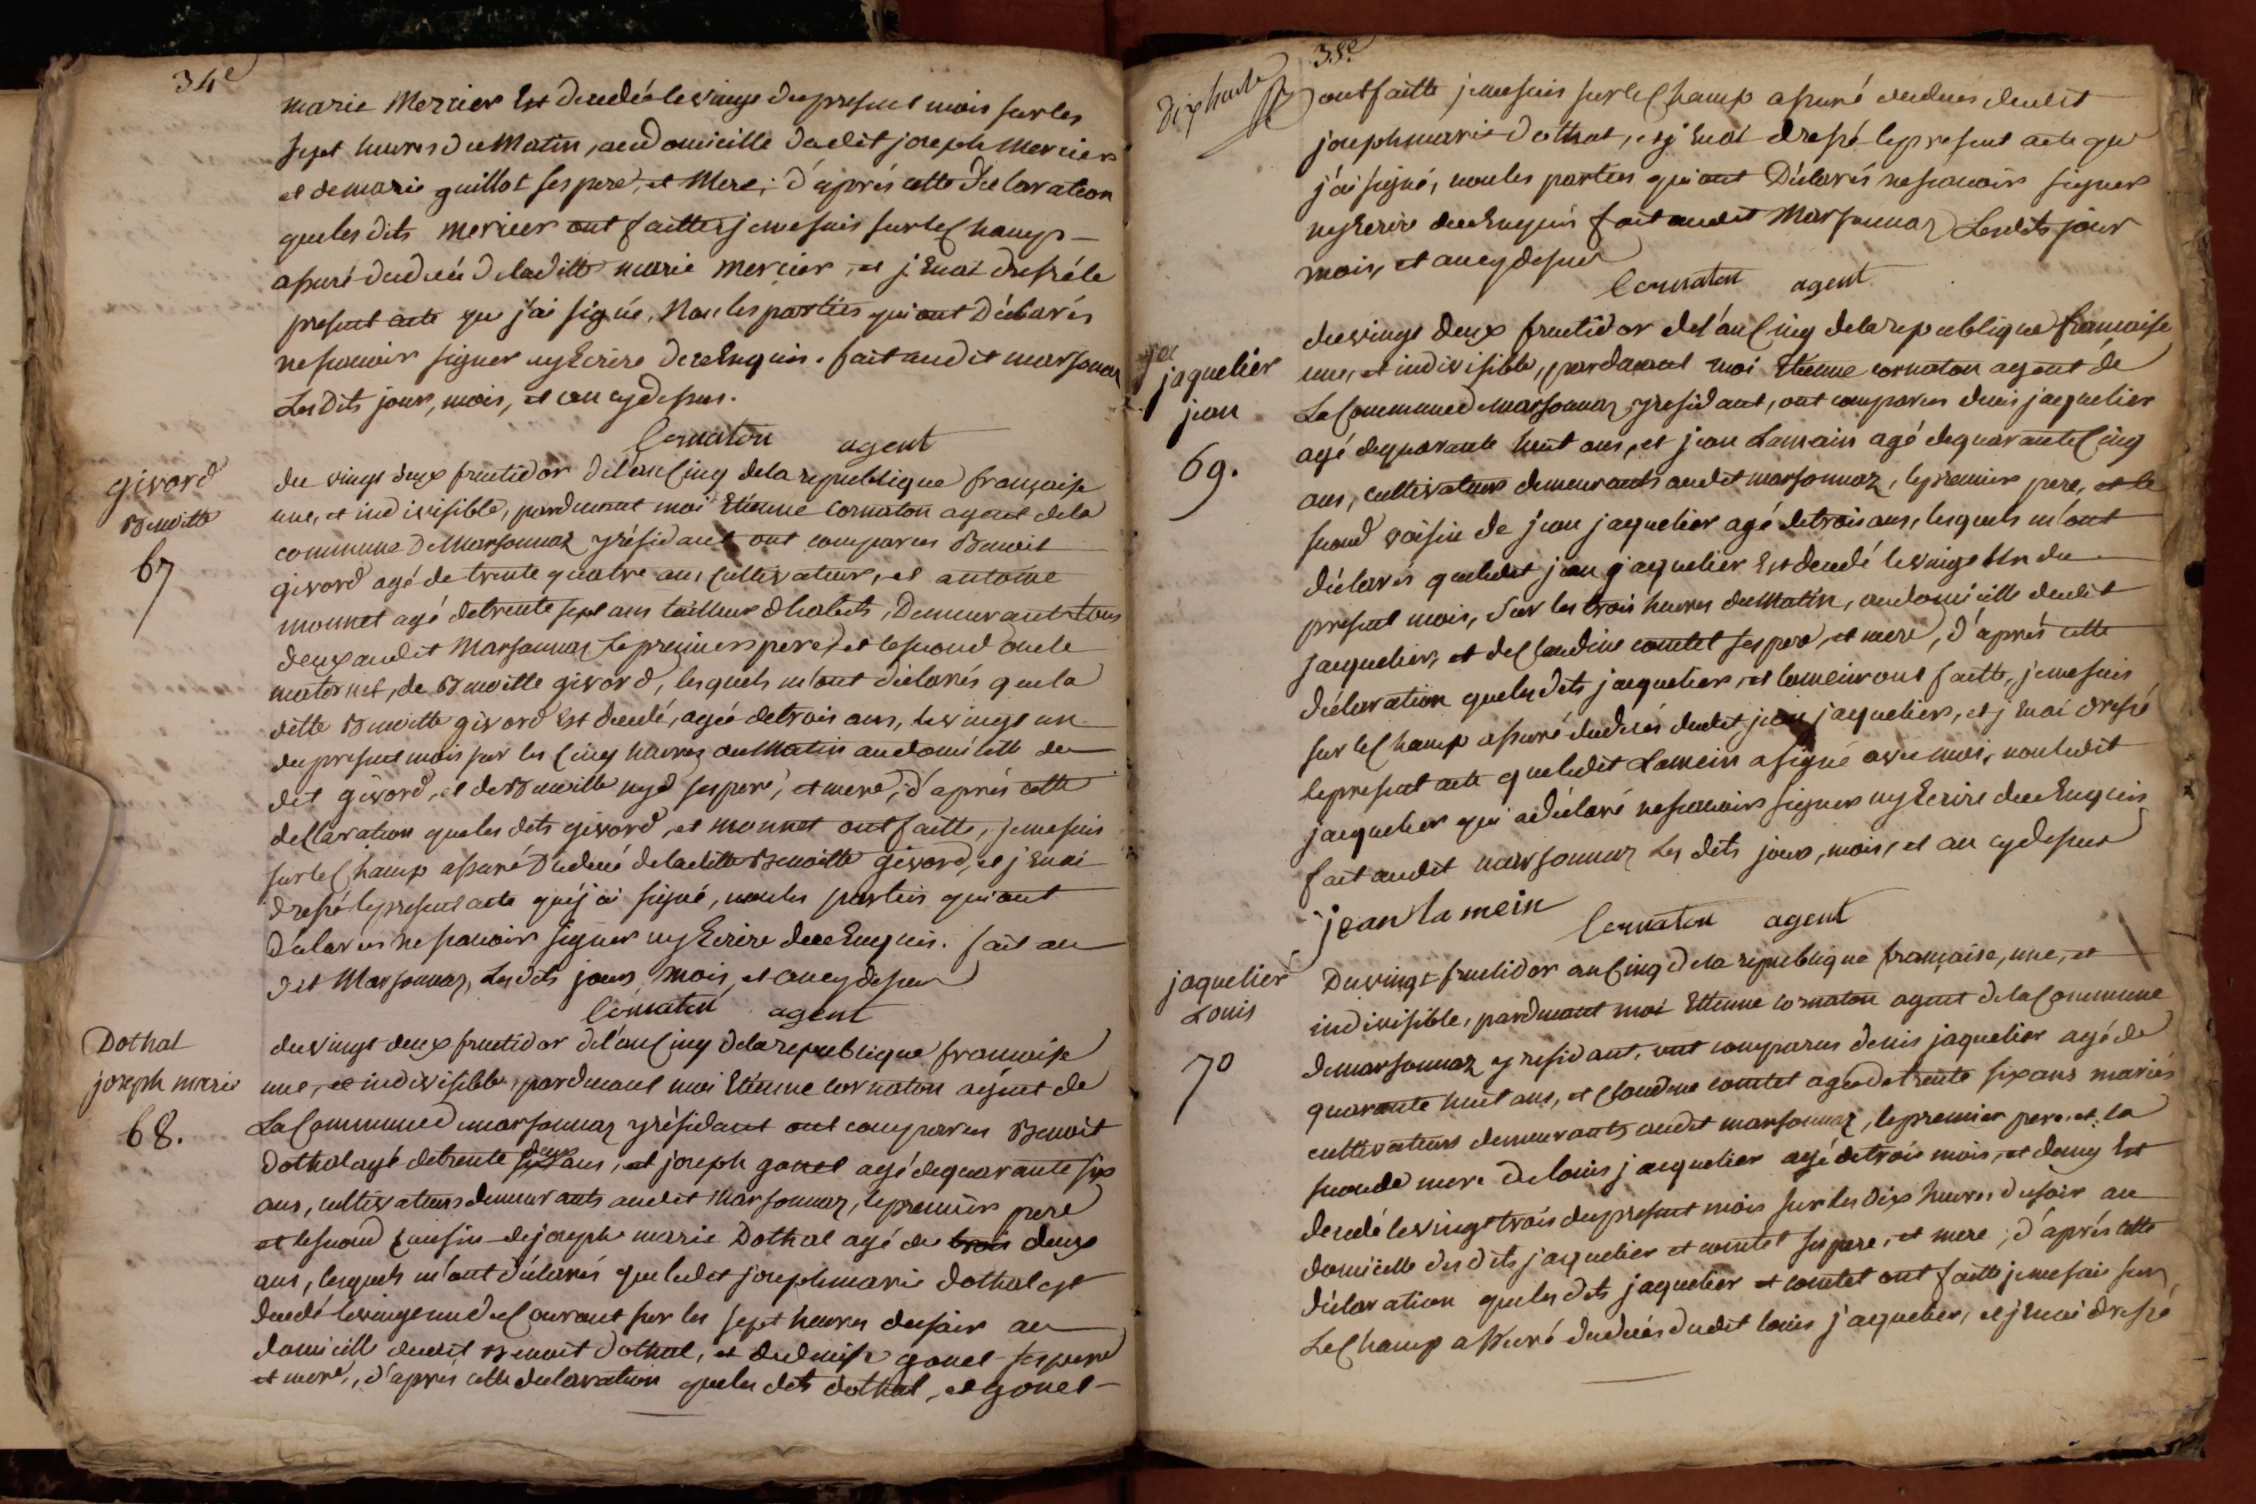 34e
marie Mercier Est decedée le vingt du present mois sur les
sept heures du Matin, au domicille dudit joseph Mercier
et de marie guillot ses pere, et Mere; d'après cette declaration
que les dits mercier ont faitte, je me suis sur le Champ
assuré du decès de laditte marie mercier, et j'Enai dressé le
present acte que j'ai signé, Non les parties qui ont Déclarés
ne savoir signer ny Ecrire de ce Enquis. fait audit marsonnaz
Les Dits jour, mois, et an cy dessus.
Cornaton agent
givord
Benoitte
67
du vingt deux fructidor de l'an Cinq de la republique française
une, et indivisible, pardevant moi Etienne Cornaton agent de la
commune De Marsonnaz y résidant ont comparus Benoit
givord agé de trente quatre ans Cultivateur, et antoine
monnet agé de trente sept ans tailleur d'habits, Demeurant tous
deux audit Marsonnaz Le premier pere, et le second oncle
maternel, de Benoitte givord, lesquels m'ont déclarés que la
ditte Benoitte givord Est decedé, agée de trois ans, le vingt un
du present mois sur les Cinq heures du Matin au domicille du
dit givord, et de Benoitte nyd ses pere, et mere, d'après cette
declaration que les dits givord, et monnet ont faitte, je me suis
sur le Champ assuré Du decé de laditte Benoitte givord, et j'Enai
dressé le present acte que j'ai signé, non les parties qui ont
déclarés ne savoir signer ny Ecrire de ce Enquis. fait au
dit Marsonnaz, Les dits jour, mois, et an cy dessus
Cornaton agent
Dothal
joseph marie
68.
du vingt deux fructidor de l'an Cinq de la republique francaise
une, et indivisible, pardevant moi Etienne Cornaton agent de
La Commune de marsonnaz y résidant ont comparus Benoit
Dothal agé de trente deux ans, et joseph gonet agé de quarante six
ans, cultivateurs demeurants audit Marsonnaz, le premier pere
et le second cousin de joseph marie Dothal agé de trois deux
ans, lesquels m'ont déclarés que ledit joseph marie dothal est
decedé le vingt un du Courant sur les sept heures du soir au
domicille dudit Benoit Dothal, et de denise gonet ses pere
et mere, d'après cette declaration que les dits dothal, et gonet
35e
dix huit
ont faitte je me suis sur le Champ assuré du deces dudit
joseph marie Dothal, et j'Enai dressé le present acte que
j'ai signé, non les parties qui ont Déclarés ne savoir signer
ny Ecrire de ce Enquis fait audit Marsonnaz Lesdits jour
mois, et an cy dessus
Cornaton agent
jaquelier
jean
69.
du vingt deux fructidor de l'an Cinq de la republique francaise
une, et indivisible, pardevant moi Etienne cornaton agent de
La Commune de Marsonnaz y residant, ont comparus denis jaquelier
agé de quarante huit ans, et jean Lamain agé de quarante Cinq
ans, cultivateurs demeurants audit marsonnaz, le premier pere, et le
second voisin de jean jaquelier agé de trois ans, lesquels m'ont
déclarés que ledit jean jaquelier Est decedé le vingt Un du
present mois, Sur les trois heures du Matin, au domicille dudit
jaquelier, et de Claudine comtet ses pere, et mere, d'après cette
déclaration que les dits jaquelier, et lamein ont faitte, je me suis
sur le Champ assuré du decés dudit jean jaquelier, et j'Enai dressé
le present acte que ledit Lamein a signé avec moi, non ledit
jaquelier qui a déclaré ne savoir signer ny Ecrire de ce Enquis
fait audit marsonnaz Les dits jour, mois, et an cy dessus
jean la mein
Cornaton agent
jaquelier
Louis
70
Du vingt fructidor an Cinq de la republique française, une, et
indivisible, pardevant moi Etienne cornaton agent de la Commune
de marsonnaz y residant, ont comparus denis jaquelier agé de
quarante huit ans, et Claudine comtet agée de trente six ans mariés
cultivateurs demeurants audit marsonnaz, le premier pere, et la
seconde mere de louis jaquelier agé de trois mois, et demy Est
decedé le vingt trois du present mois sur les dix heures du soir au
domicille des dits jaquelier et comtet ses pere, et mere; d'après cette
déclaration que les dits jaquelier et comtet ont faitte je me suis sur
Le Champ assuré du decès dudit louis jaquelier, et j'Enai dressé